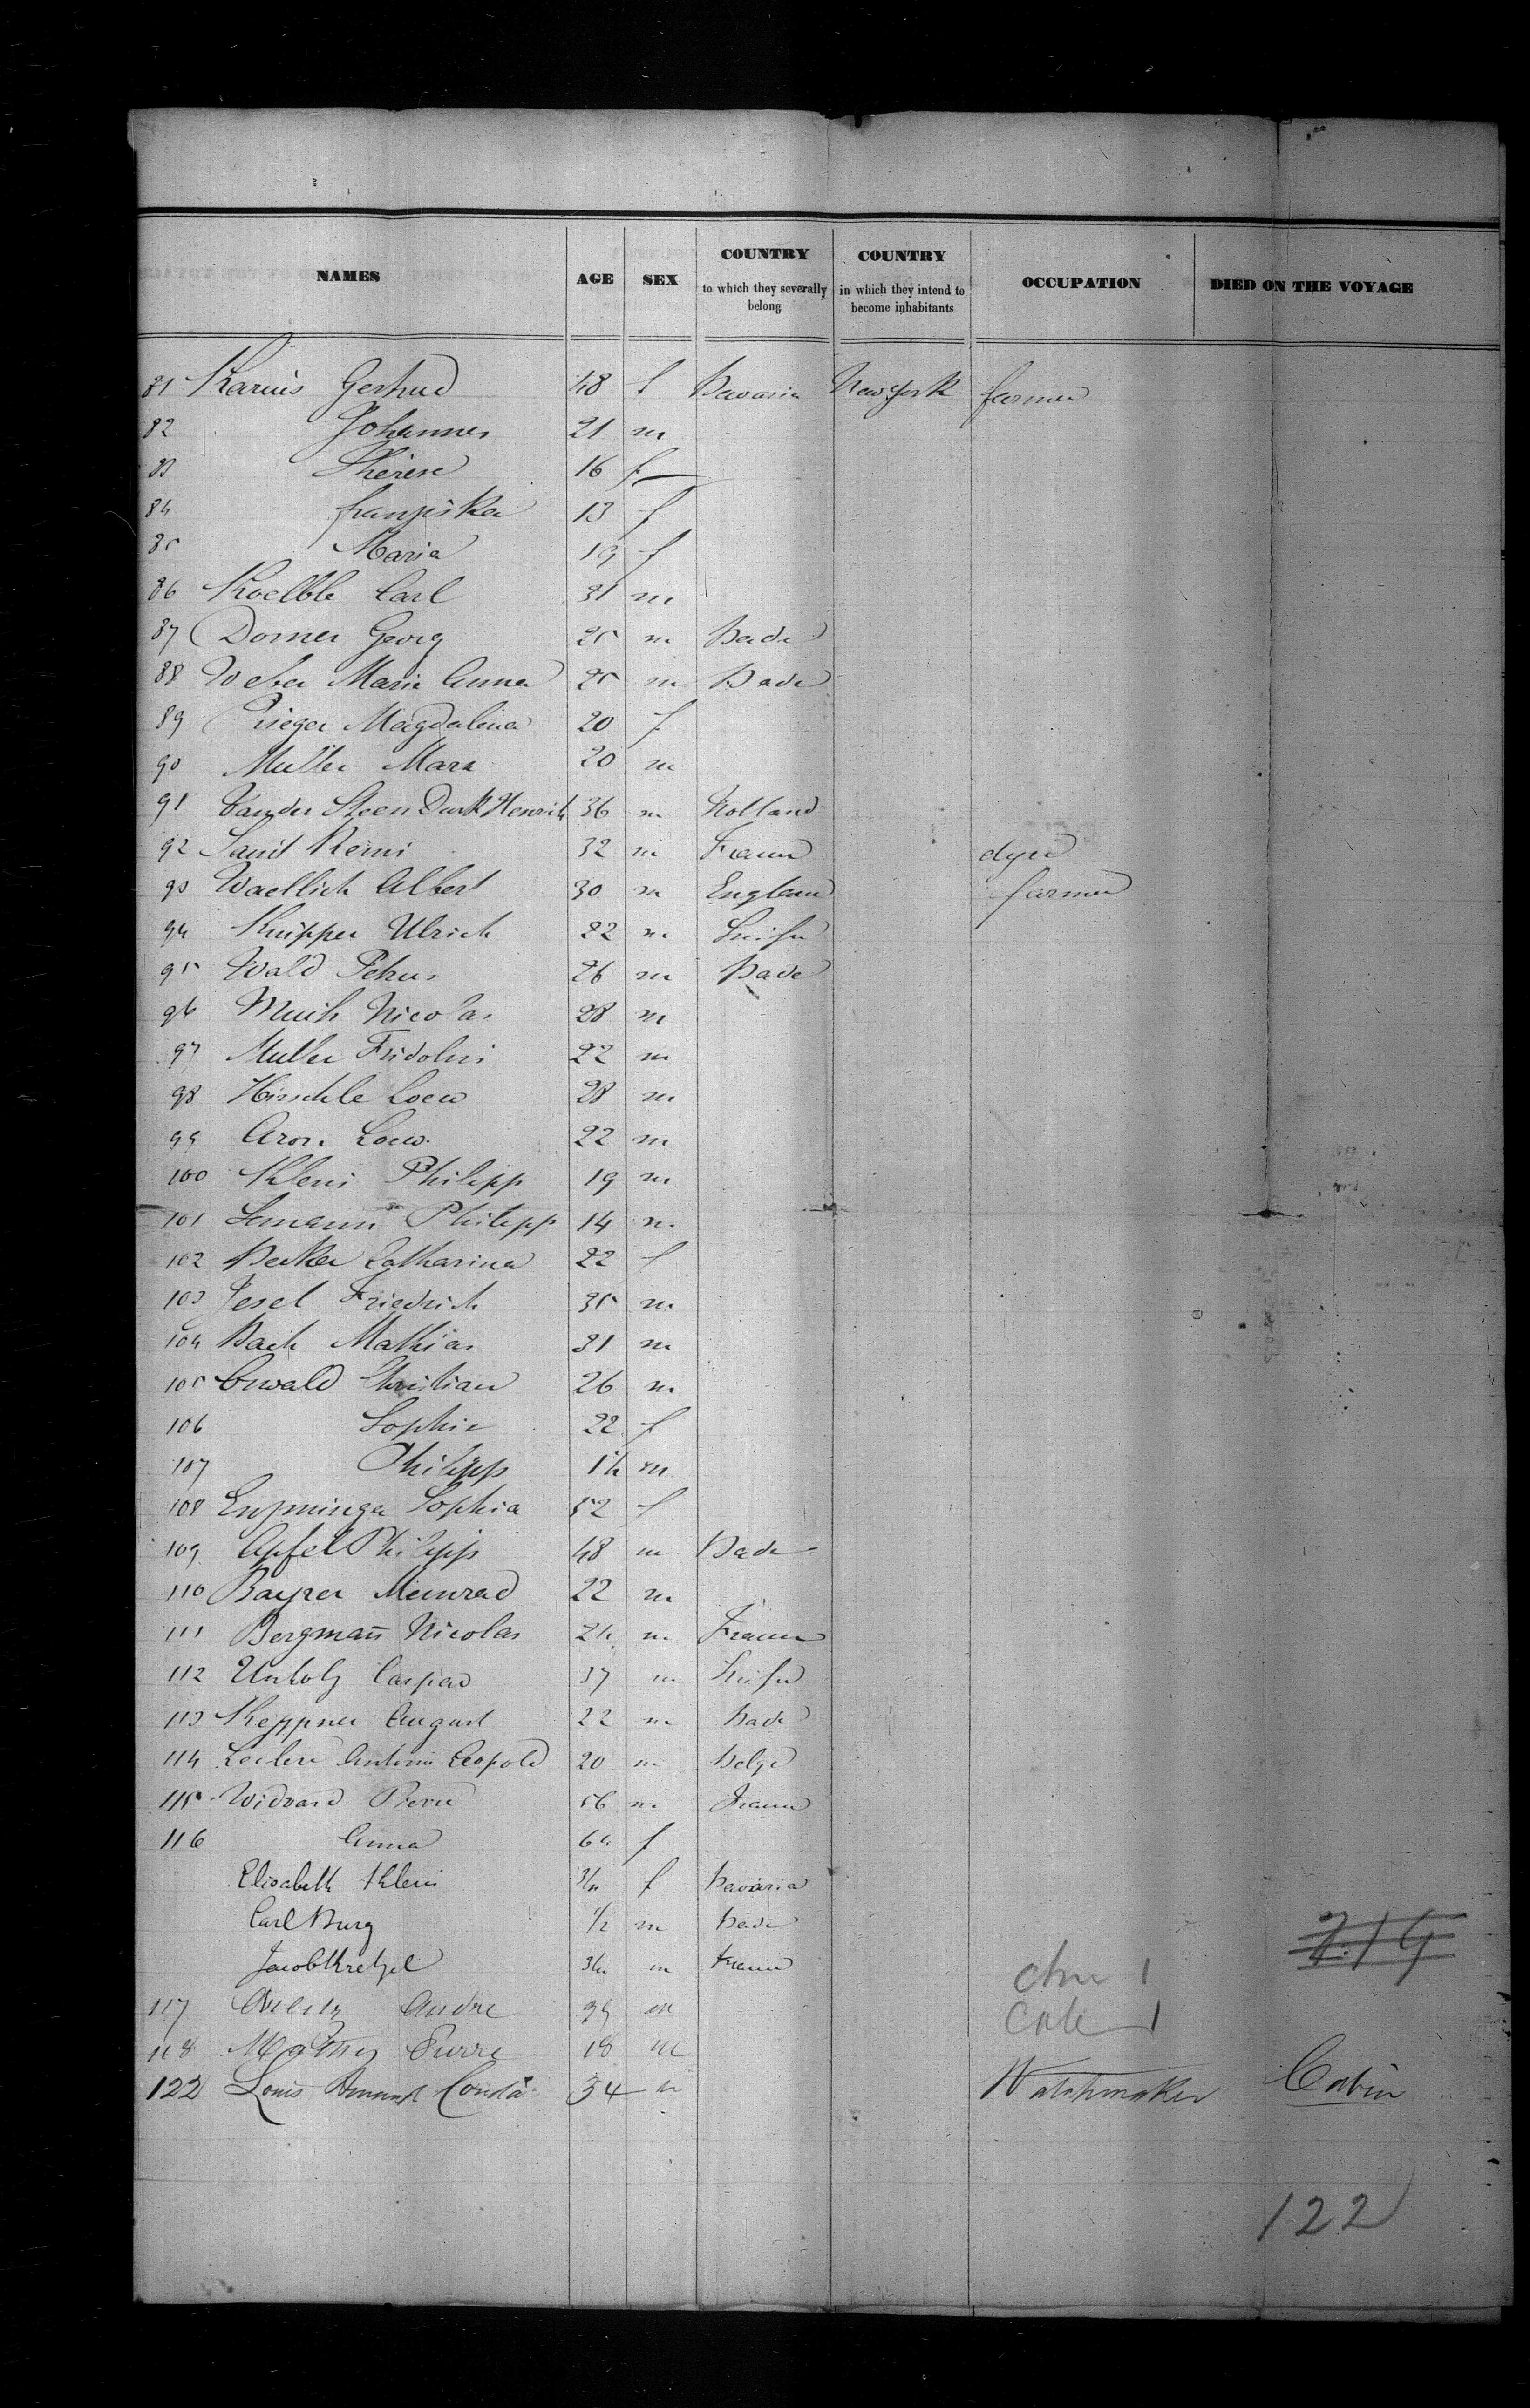 NAMES AGE SEX COUNTRY to which they severally belong COUNTRY in which they intend to become inhabitants OCCUPATION DIED ON THE VOYAGE
81 Karius Gertrud 48 f Bavaria New York farmer
82 Johannes 21 m
83 Therese 16 f
84 franziska 13 f
85 Maria 19 f
86 Koelble Carl 31 m
87 Dorner Georg 25 m Bade
88 Weber Marie Anna 25 m Bade
89 Rieger Magdalena 20 f
90 Muller Marx 20 m
91 Vander Steen Durk Henrich 36 m Holland
92 Remi 32 m France dyer
93 Waellich Albert 30 m England farmer
94 Knipper Ulrich 22 m
95 Wald Petrus 26 m Bade
96 Nicolas 28 m
97 Muller Fridolin 22 m
98 Hirschle Loew 28 m
99 Aron Loew 22 m
100 Klein Philipp 19 m
101 Lemann Philipp 14 m
102 Becker Catharina 22 f
103 Jesel Friedrich 35 m
104 Bach Mathias 31 m
105 Ewald Christian 26 m
106 Sophie 22 f
107 Philipp m
108 Enzminger Sophia 52 f
109 Apfel Philipp 48 m Bade
110 Meinrad 22 m
111 Bergmañ Nicolas 24 m France
112 Caspar 37 m
113 Keppner August 22 m Bade
114 Leclere Antonin Leopold 20 m Belge
115 Widvard Pierre 56 m France
116 Anna 64 f
Elisabeth Klein 3/4 f Bavaria
Carl Burg 1/2 m Bade
Jacob Kretzel 3/4 m France
719
117 Andre m
118 Pierre 18 m
122 Louis 34 m Watchmaker Cabin
122